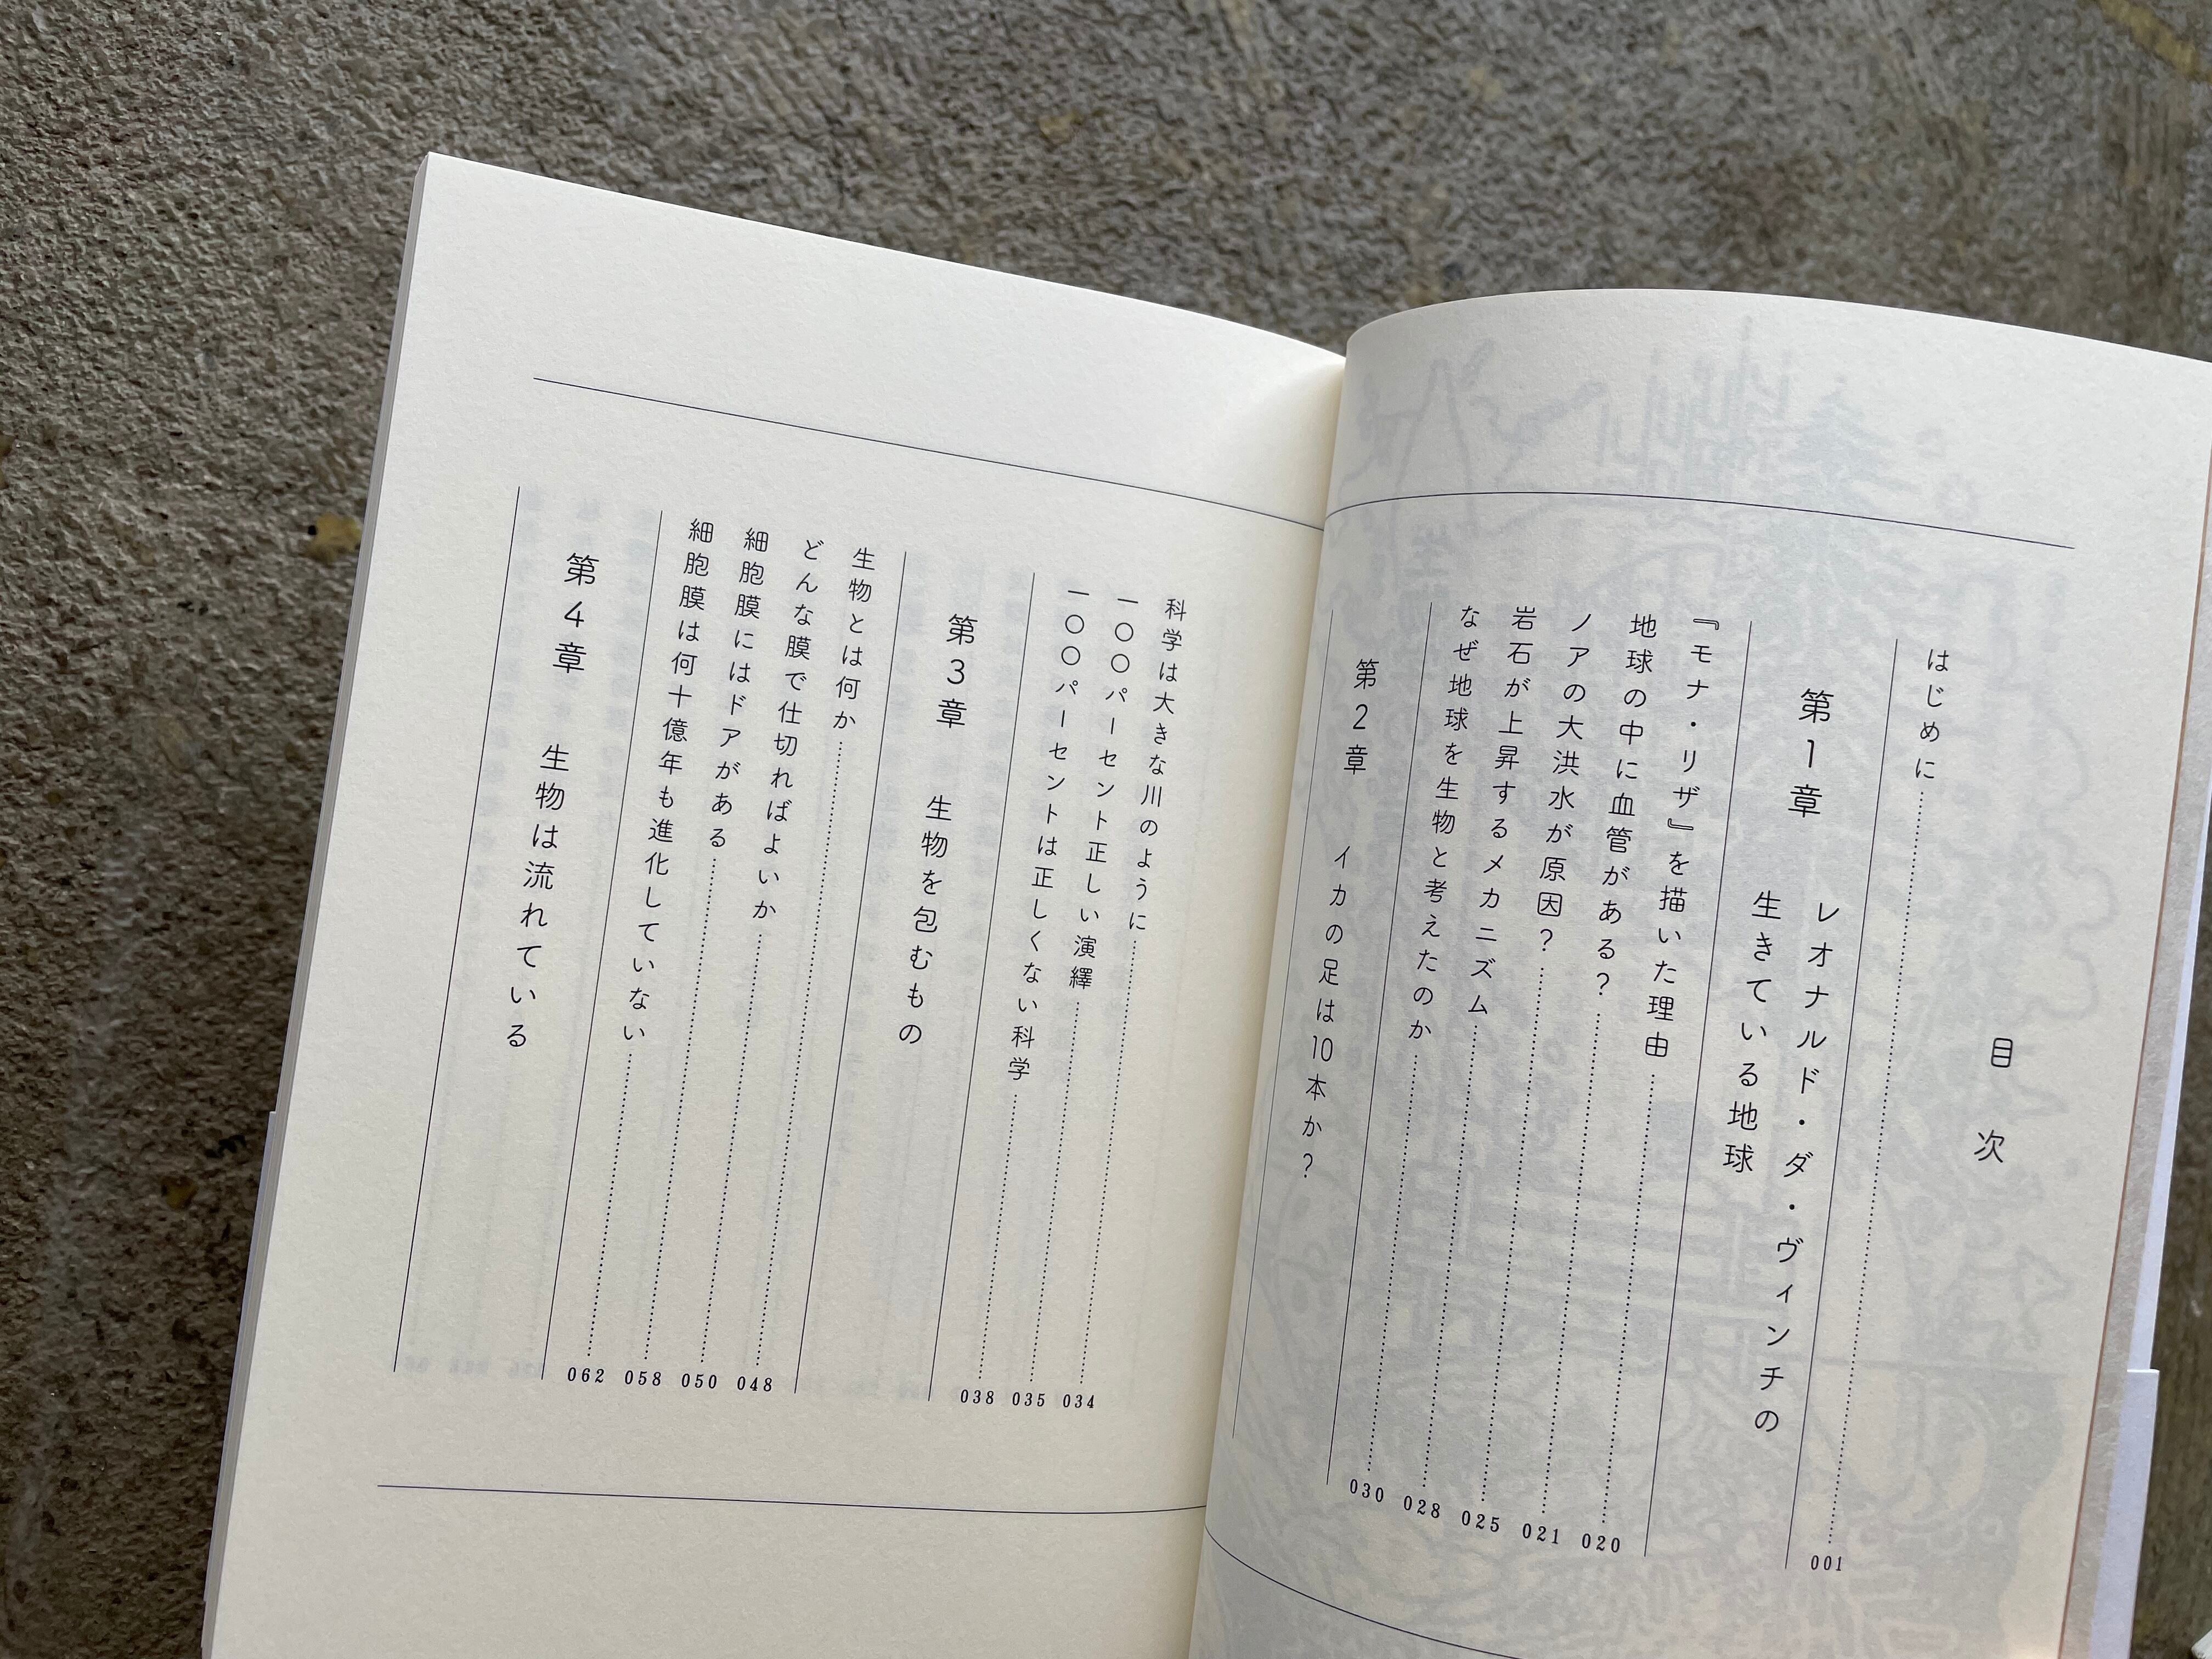 目次
はじめに 001
第1章 レオナルド・ダ・ヴィンチの
生きている地球
『モナ・リザ』を描いた理由 020
地球の中に血管がある? 021
ノアの大洪水が原因? 025
岩石が上昇するメカニズム 028
なぜ地球を生物と考えたのか 030
第2章 イカの足は10本か?
科学は大きな川のように 034
一〇〇パーセント正しい演繹 035
一〇〇パーセントは正しくない科学 038
第3章 生物を包むもの
生物とは何か 048
どんな膜で仕切ればよいか 050
細胞膜にはドアがある 058
細胞膜は何十億年も進化していない 062
第4章 生物は流れている